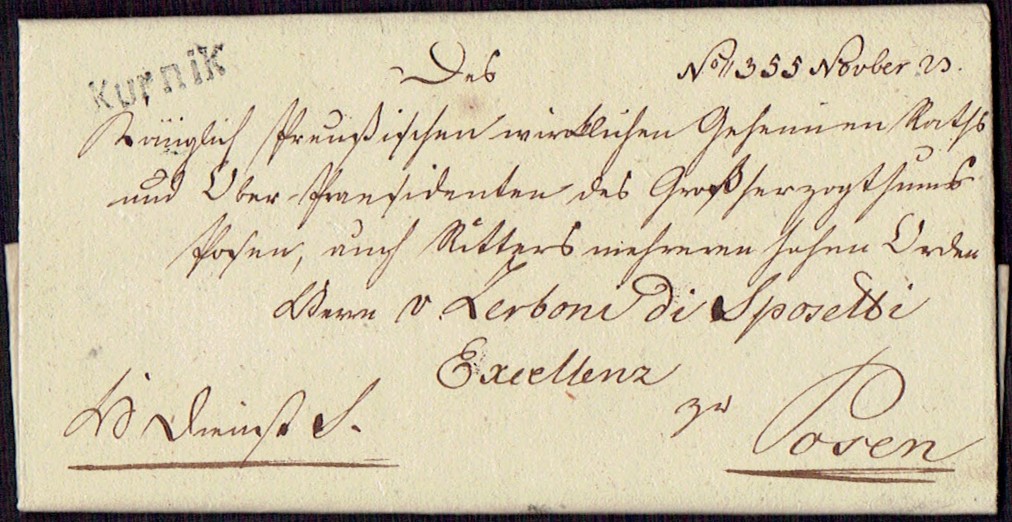 Kurnik
Des
No 1355 November 23.
Königlich Preußischen wirklichen Geheimen Raths
und Ober-Praesidenten des Großherzogthums
Posen, auch Ritters mehrerer hohen Orden
Herrn v Zerboni di Sposetti
Excellenz
zu Posen
Dienst S.